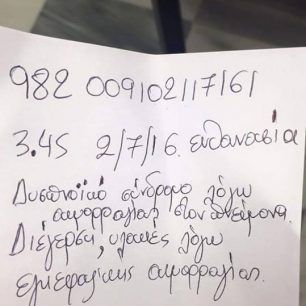 982 009102117161
3.45 2/7/16. ευθανασία
Δυσπνοϊκό σύνδρομο λόγω
αιμορραγίας στον πνεύμονα.
Διέγερση, υλακές λόγω
εγκεφαλικής αιμορραγίας.